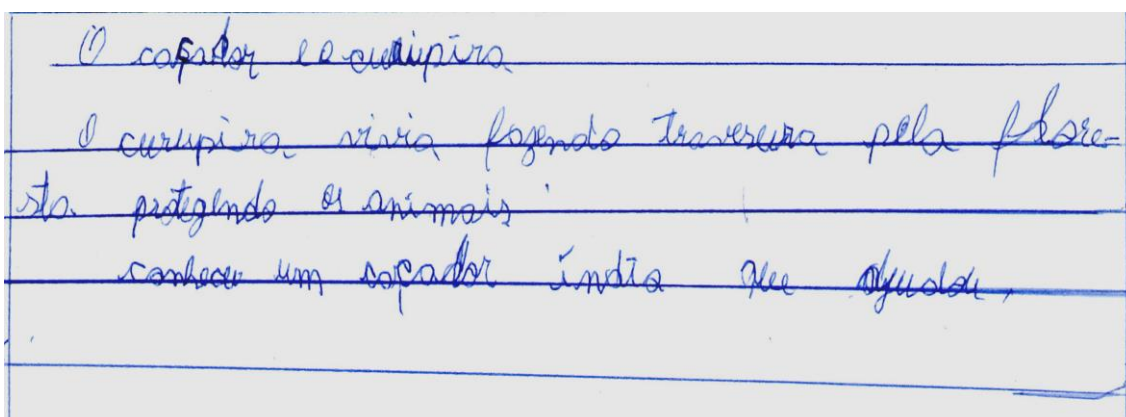 O caçador e o curupira
O curupira vivia fazendo traveseura pela flore-
sta. protegendo os animais
conheceu um caçador índio que ajudou,